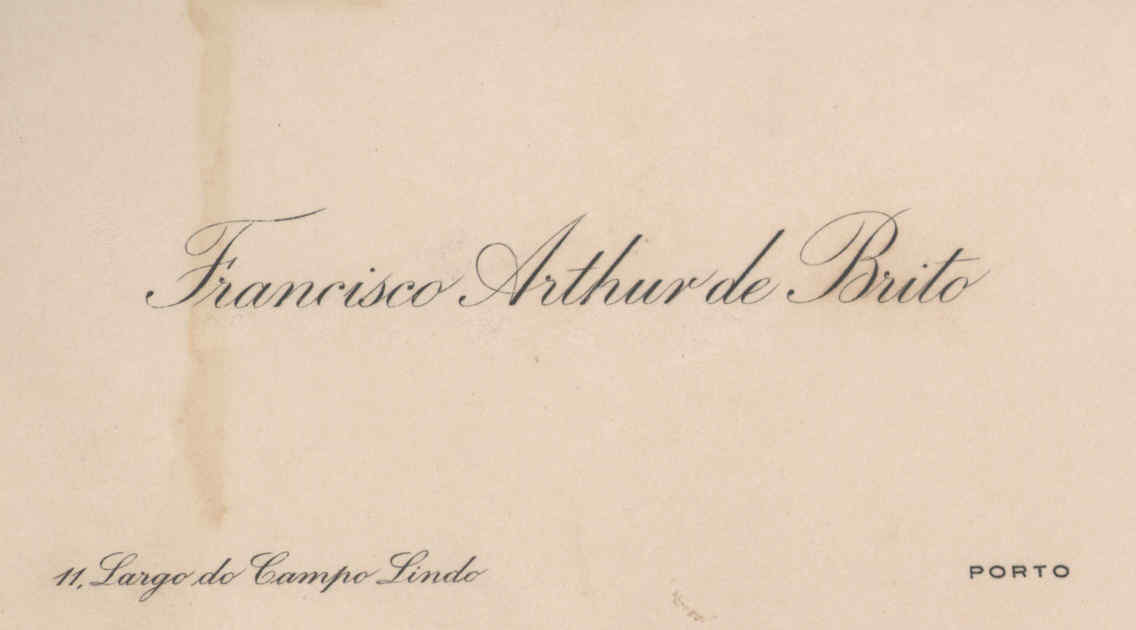 Francisco Arthur de Brito
11, Largo do Campo Lindo
PORTO